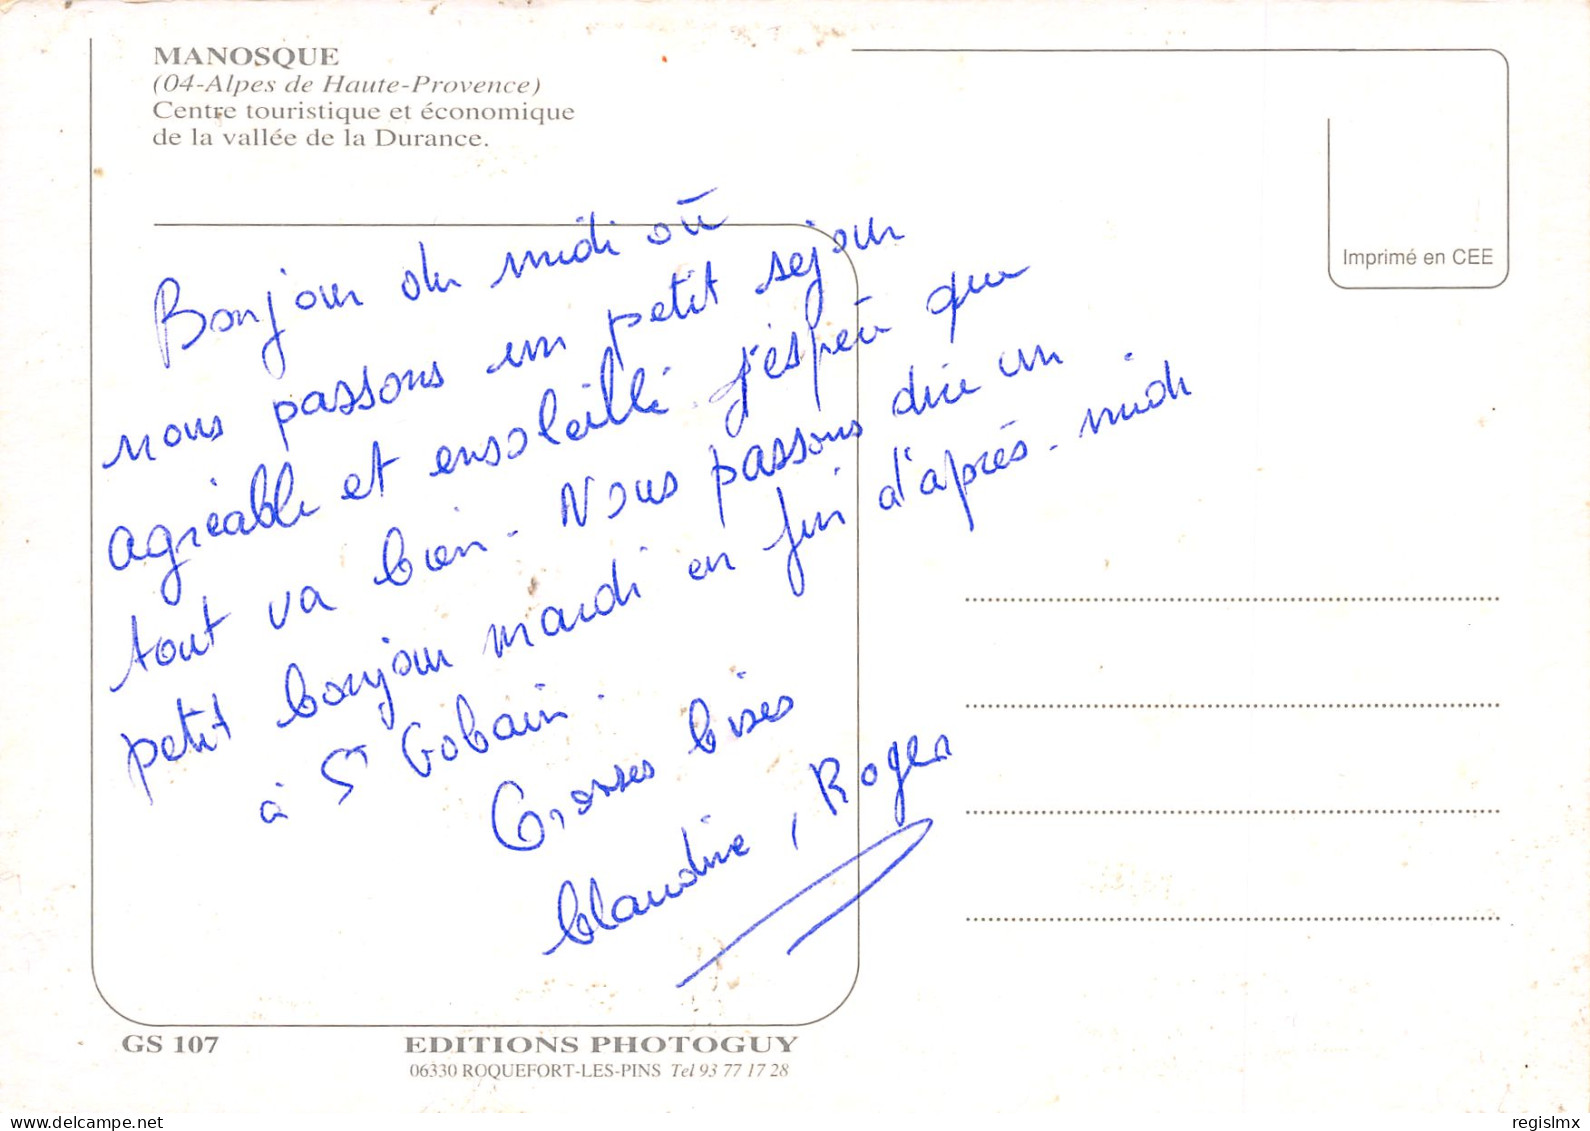 MANOSQUE
(04-Alpes de Haute-Provence)
Centre touristique et économique
de la vallée de la Durance.
Imprimé en CEE
Bonjour du midi où
nous passons un petit sejour
agréable et ensoleillé. J'espère que
tout va bien. Nous passons dire un
petit bonjour mardi en fin d'après-midi
à St Gobain.
Grosses bises
Claudine, Roger
GS 107
EDITIONS PHOTOGUY
06330 ROQUEFORT-LES-PINS Tel 93 77 17 28
regislmx